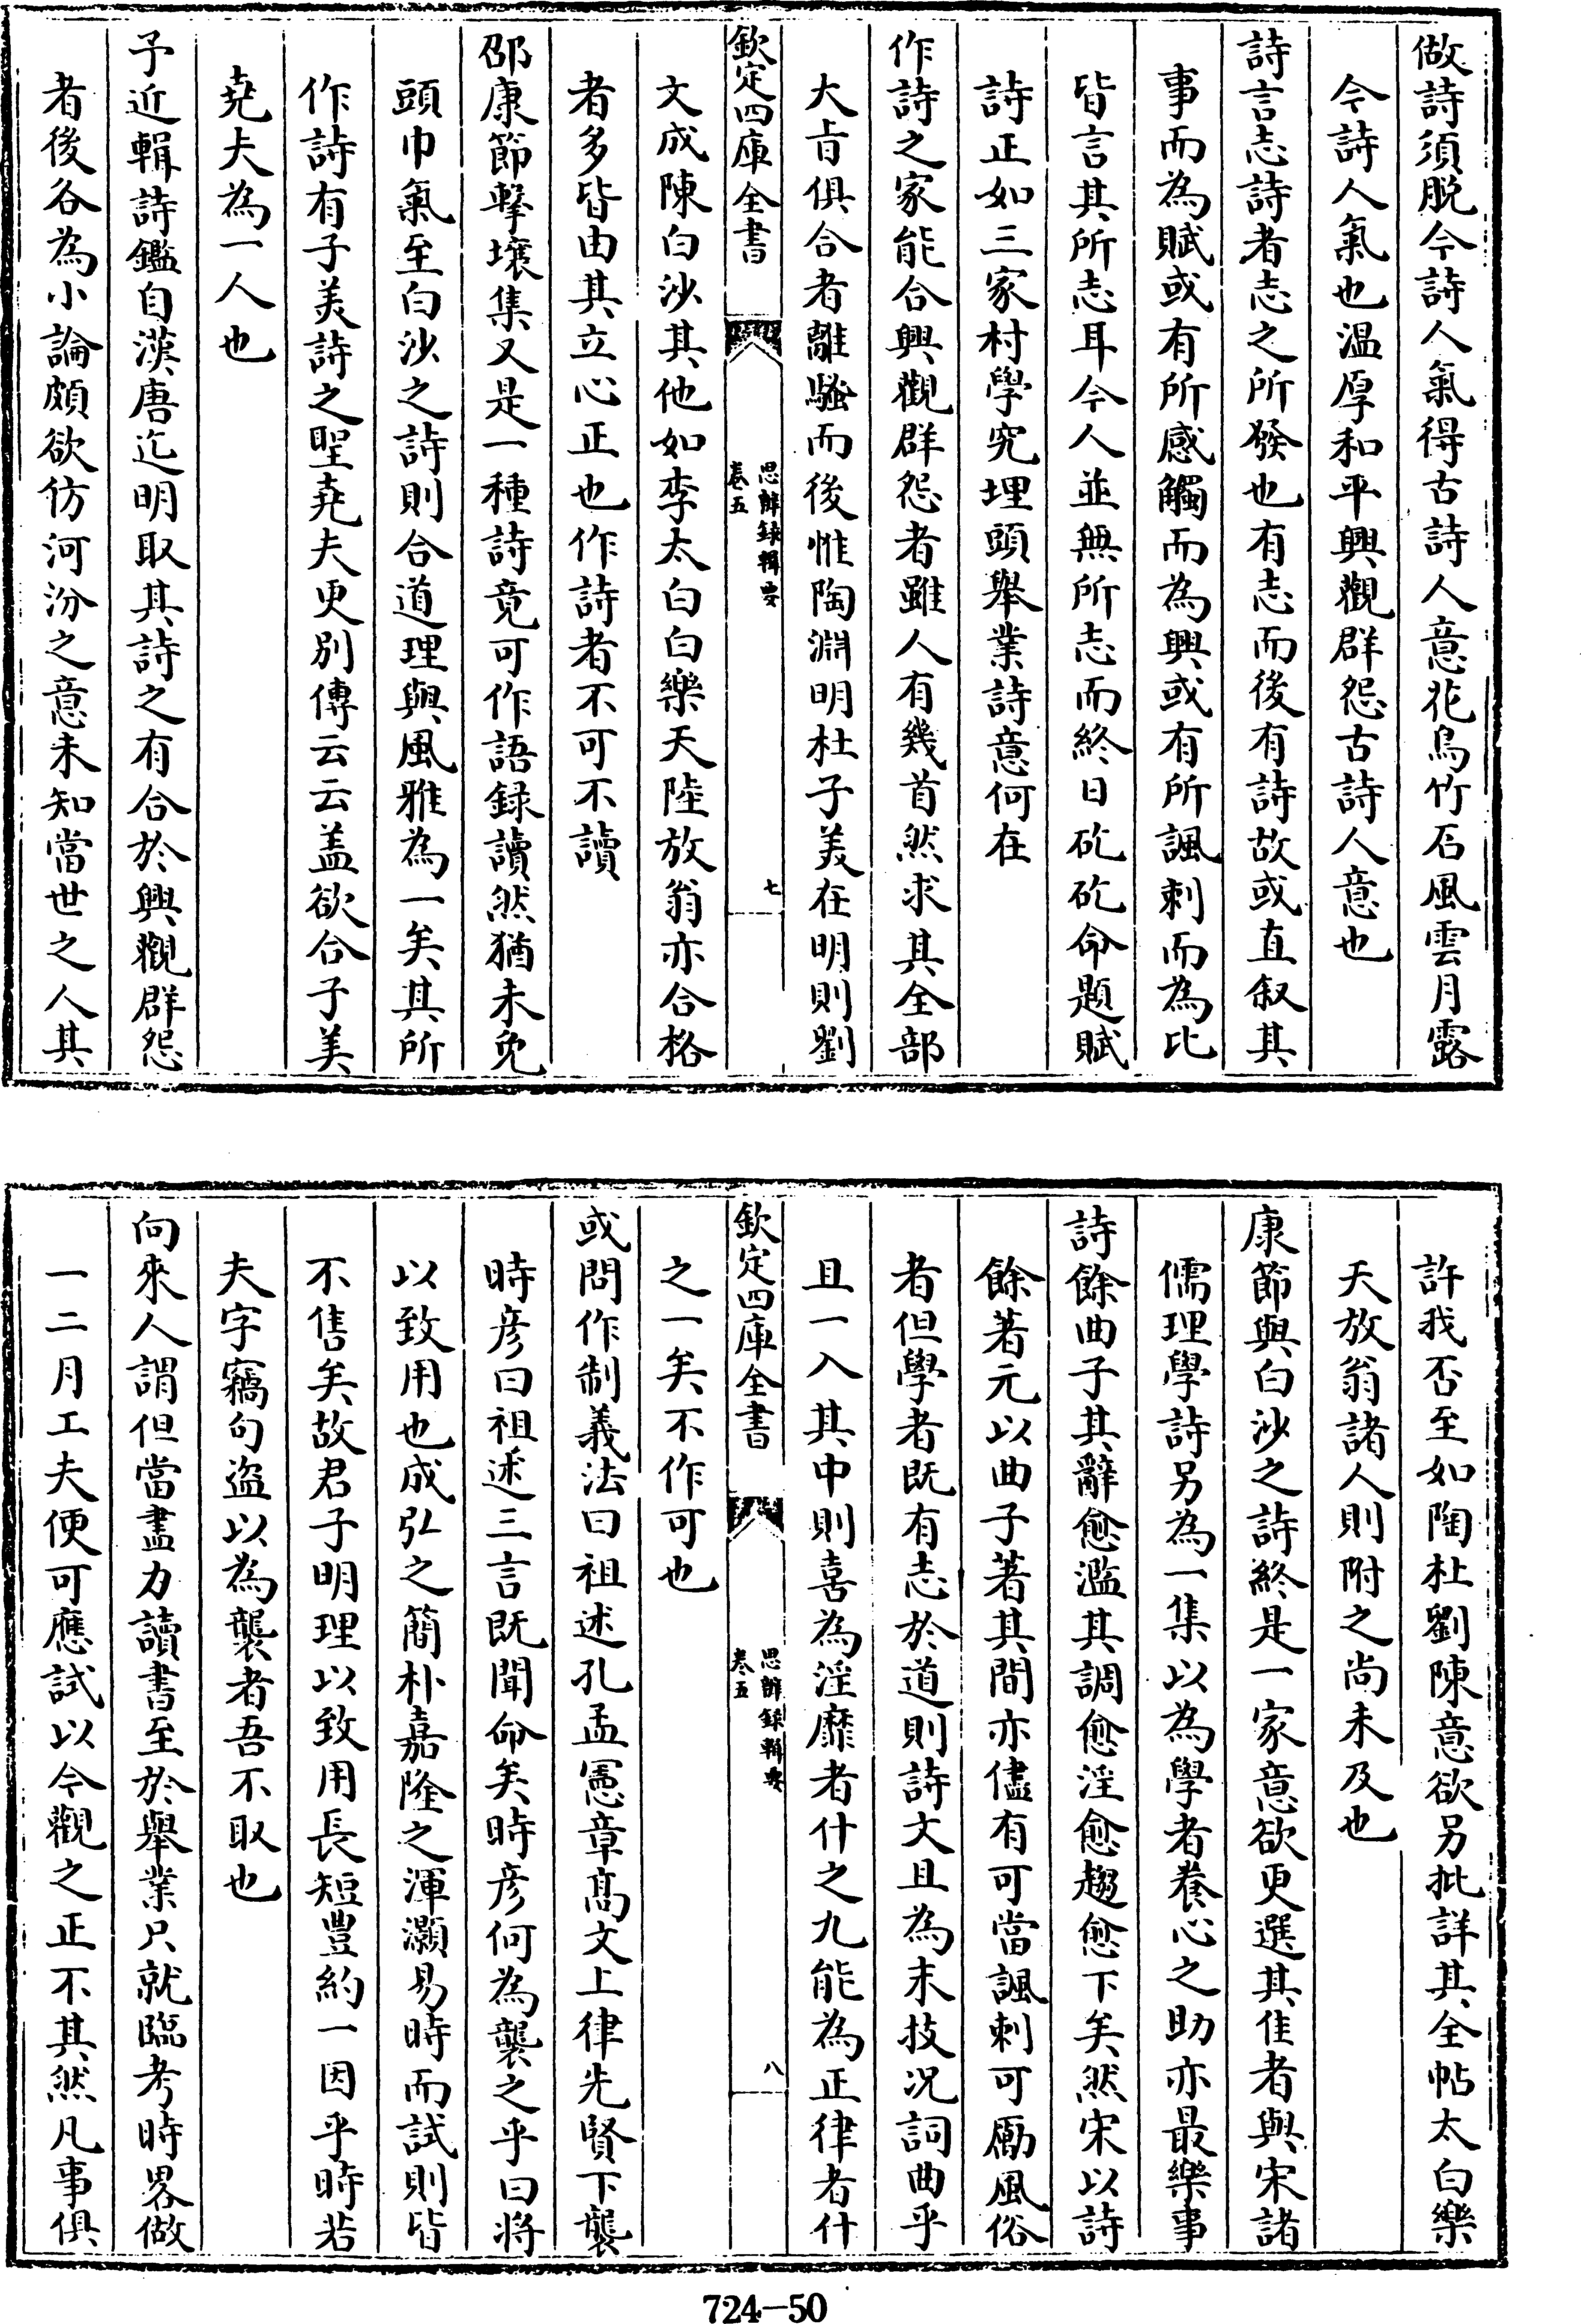 做詩須脫今詩人氣得古詩人意花鳥竹石風雲月露
今詩人氣也溫厚和平興觀群怨古詩人意也
詩言志詩者志之所發也有志而後有詩故或直叙其
事而為賦或有所感觸而為興或有所諷刺而為比
皆言其所志耳今人並無所志而終日矻矻命題賦
詩正如三家村學究埋頭舉業詩意何在
作詩之家能合興觀群怨者雖人有幾首然求其全部
大㫖俱合者離騷而後惟陶淵明杜子美在明則劉
欽定四庫全書
思辨録輯要
卷五
七
文成陳白沙其他如李太白白樂天陸放翁亦合格
者多皆由其立心正也作詩者不可不讀
邵康節擊壤集又是一種詩竟可作語録讀然猶未免
頭巾氣至白沙之詩則合道理與風雅為一矣其所
作詩有子美詩之聖堯夫更别傳云云盖欲合子美
堯夫為一人也
予近輯詩鑑自漢唐迄明取其詩之有合於興觀群怨
者後各為小論頗欲仿河汾之意未知當世之人其
許我否至如陶杜劉陳意欲另批詳其全帖太白樂
天放翁諸人則附之尚未及也
康節與白沙之詩終是一家意欲更選其佳者與宋諸
儒理學詩另為一集以為學者養心之助亦最樂事
詩餘曲子其辭愈濫其調愈淫愈趨愈下矣然宋以詩
餘著元以曲子著其間亦儘有可當諷刺可勵風俗
者但學者既有志於道則詩文且為末技况詞曲乎
且一入其中則喜為淫靡者什之九能為正律者什
欽定四庫全書
思辨録輯要
卷五
八
之一矣不作可也
或問作制義法曰祖述孔孟憲章髙文上律先賢下襲
時彦曰祖述三言既聞命矣時彦何為襲之乎曰將
以致用也成弘之簡朴嘉隆之渾灝易時而試則皆
不售矣故君子明理以致用長短豐約一因乎時若
夫字竊句盗以為襲者吾不取也
向來人謂但當盡力讀書至於舉業只就臨考時畧做
一二月工夫便可應試以今觀之正不其然凡事俱
724-50